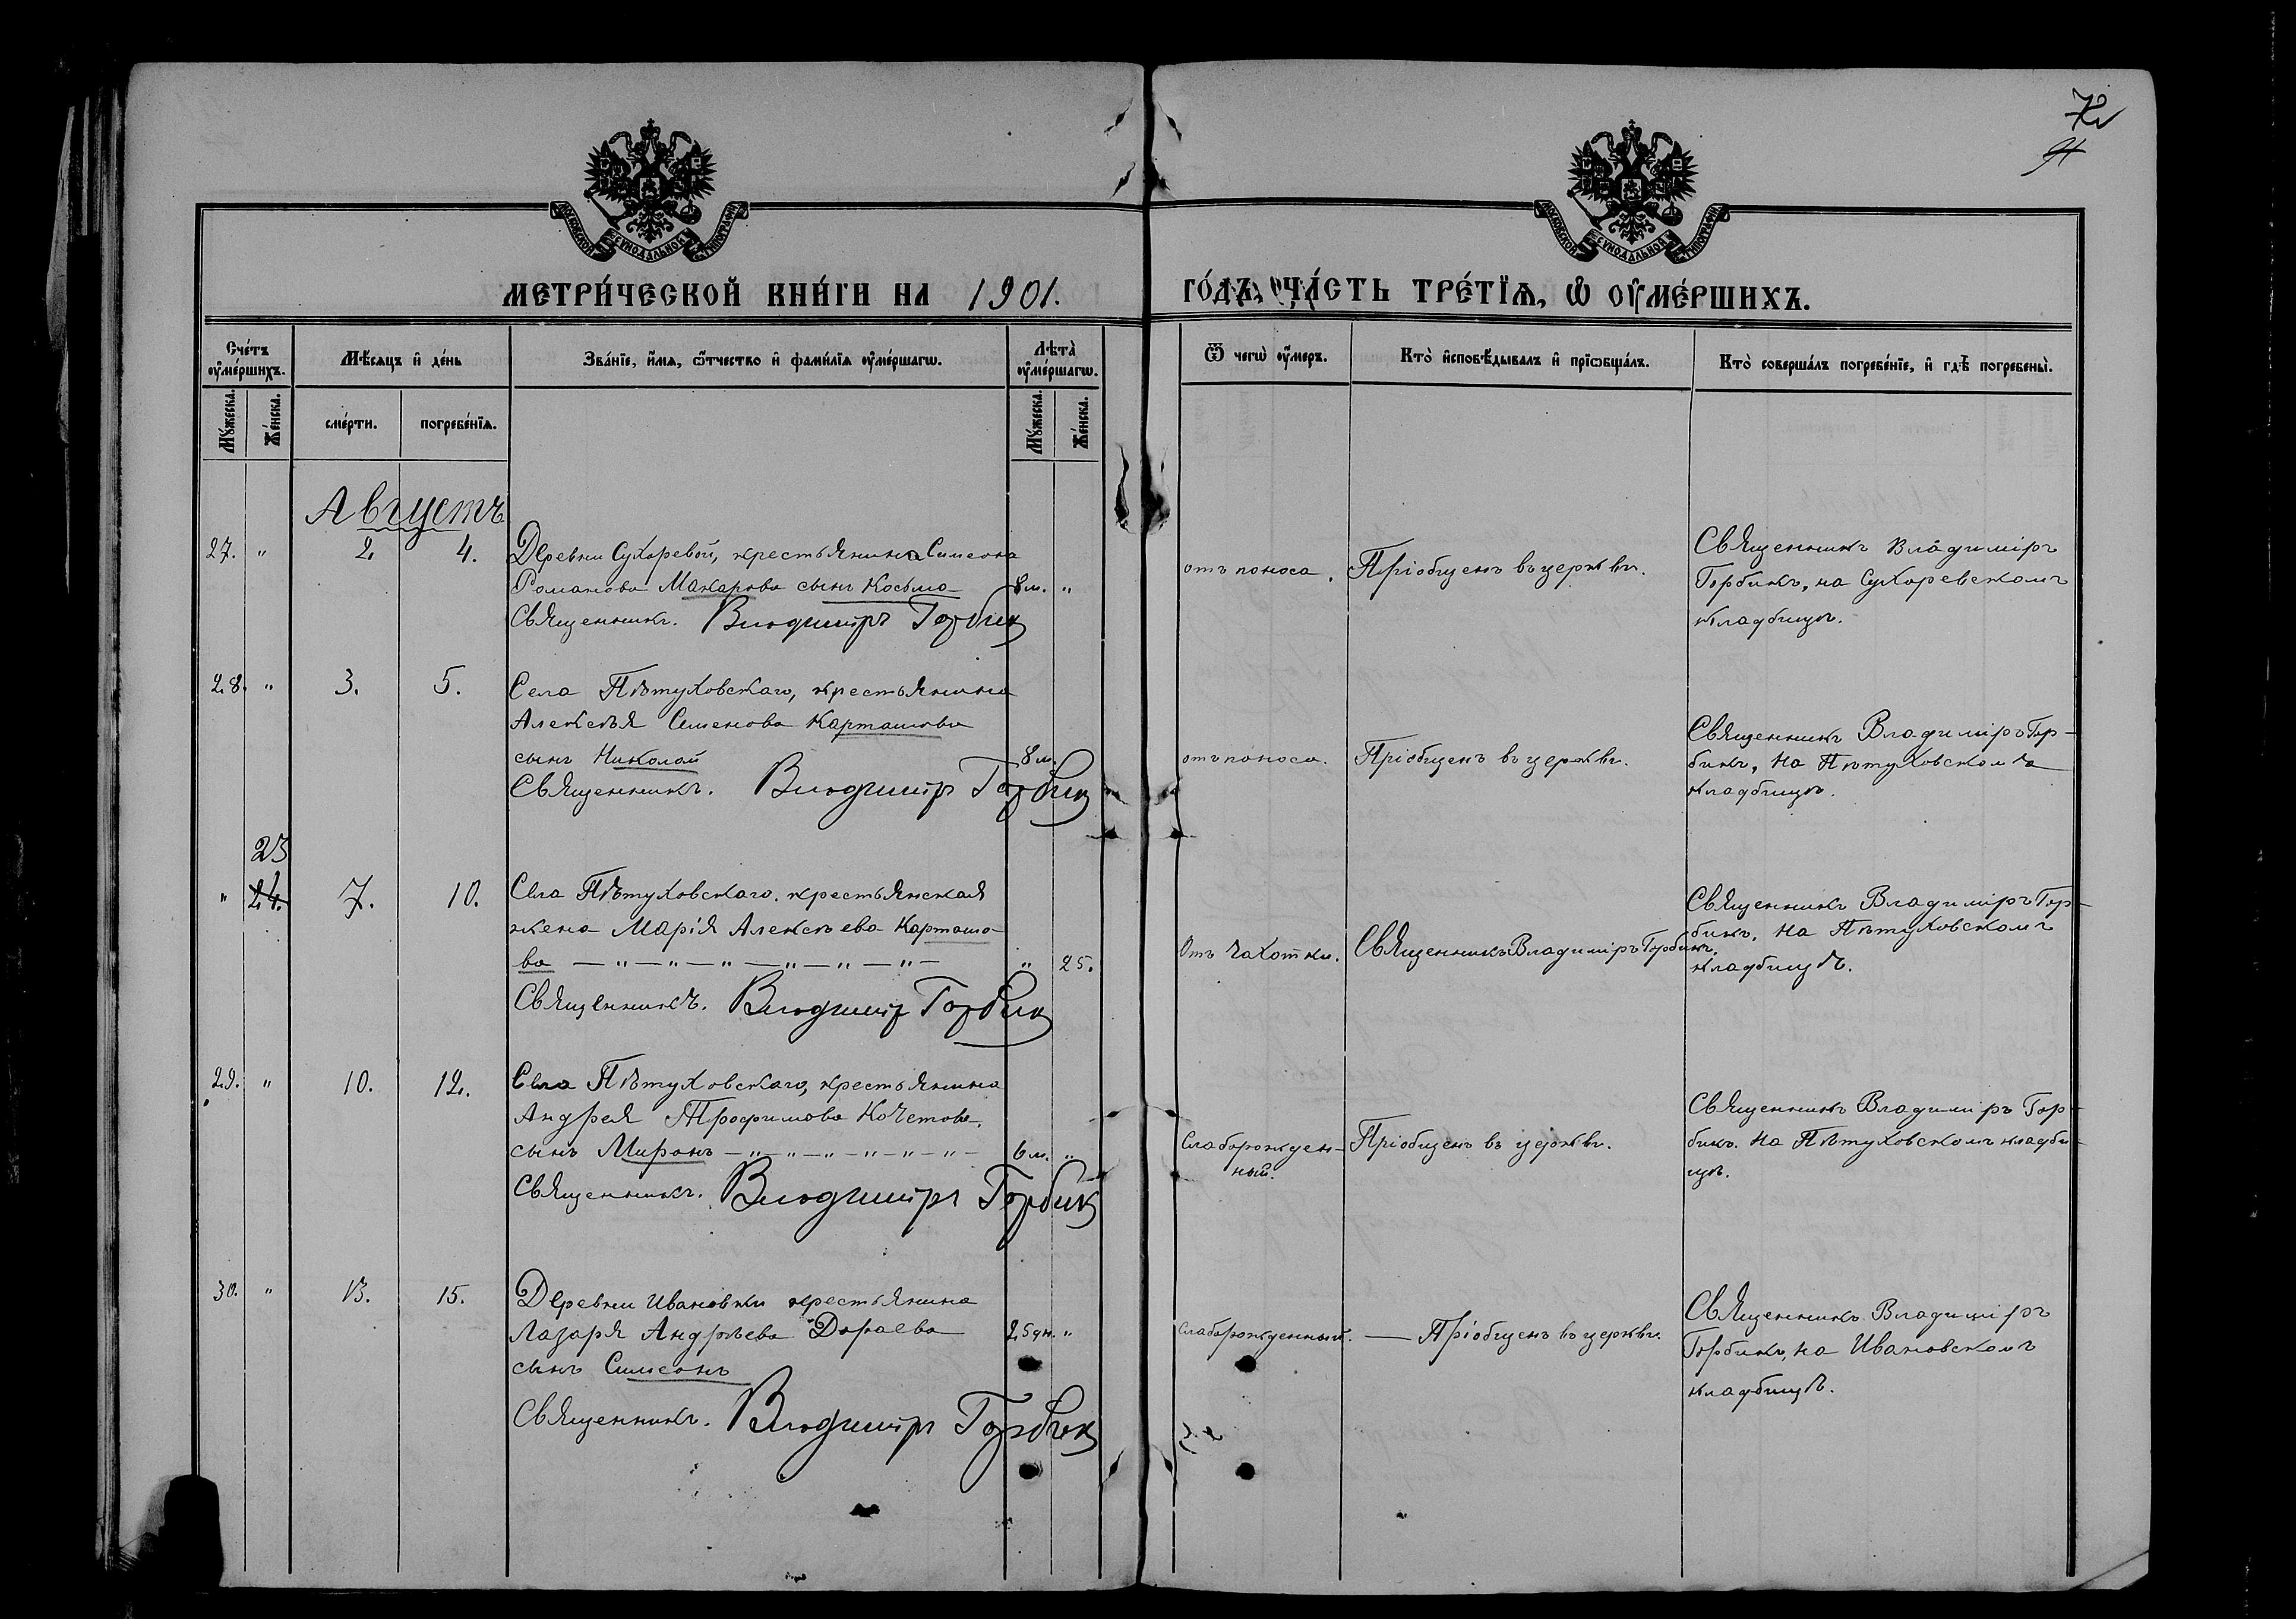 72
91
МОСКОВСКОЙ СѴНОДАЛЬНОЙ ТИПОГРАФІИ
МОСКОВСКОЙ СѴНОДАЛЬНОЙ ТИПОГРАФІИ
МЕТРИ́ЧЕСКОЙ КНИ́ГИ НА 1901. ГО́ДЪ, ЧА́СТЬ ТРЕ́ТЇѦ, Ѡ҆ ОУ҆МЕ́РШИХЪ.
Сче́тъ оу҆ме́ршихъ.
Мѣ́сяцъ и҆ де́нь
Зва́нїе, и҆́мя, ѻ҆́тчество и҆ фами́лїя оу҆ме́ршагѡ.
Лѣта̀ оу҆ме́ршагѡ.
Ѿ чегѡ̀ оу҆́меръ.
Кто̀ и҆сповѣ́дывалъ и҆ прїѡбща́лъ.
Кто̀ соверша́лъ погребе́нїе, и҆ гдѣ̀ погребены̀.
Му́жеска.
Же́нска.
сме́рти.
погребе́нїѧ.
Му́жеска.
Же́нска.
Августъ
27. " 2. 4. Деревни Сухоревой, крестьянина Симеона
Романова Макарова сынъ Косьма 8 м. "
Священникъ. Владиміръ Горбик
отъ поноса. Пріобщенъ въ церкви.
Священникъ Владиміръ
Горбикъ, на Сухоревскомъ
кладбищѣ.
28. " 3. 5. Села Пѣтуховскаго, крестьянина
Алексѣя Семенова Карташова
сынъ Николай 8 м.
Священникъ. Владиміръ Горбик
отъ поноса. Пріобщенъ въ церкви.
Священникъ Владиміръ Гор-
бикъ, на Пѣтуховскомъ
кладбищѣ.
23
" 24. 7. 10. Села Пѣтуховскаго, крестьянская
жена Марія Алексѣева Карташо-
ва — " — " — " — " — " — " — " 25.
Священникъ. Владиміръ Горбик
Отъ чахотки. Священникъ Владиміръ Горбикъ.
Священникъ Владиміръ Гор-
бикъ, на Пѣтуховскомъ
кладбищѣ.
29. " 10. 12. Села Пѣтуховскаго, крестьянина
Андрея Трофимова Кочетова,
сынъ Миронъ — " — " — " — " — " — " — 6 м. "
Священникъ. Владиміръ Горбик
Слаборожден-
ный. Пріобщенъ въ церкви.
Священникъ Владиміръ Гор-
бикъ. на Пѣтуховскомъ кладби-
щѣ.
30. " 13. 15. Деревни Ивановки крестьянина
Лазаря Андрѣева Дораева 25 дн. "
сынъ Симеонъ
Священникъ. Владиміръ Горбик
Слаборожденный. — Пріобщенъ въ церкви.
Священникъ Владиміръ
Горбикъ, на Ивановскомъ
кладбищѣ.